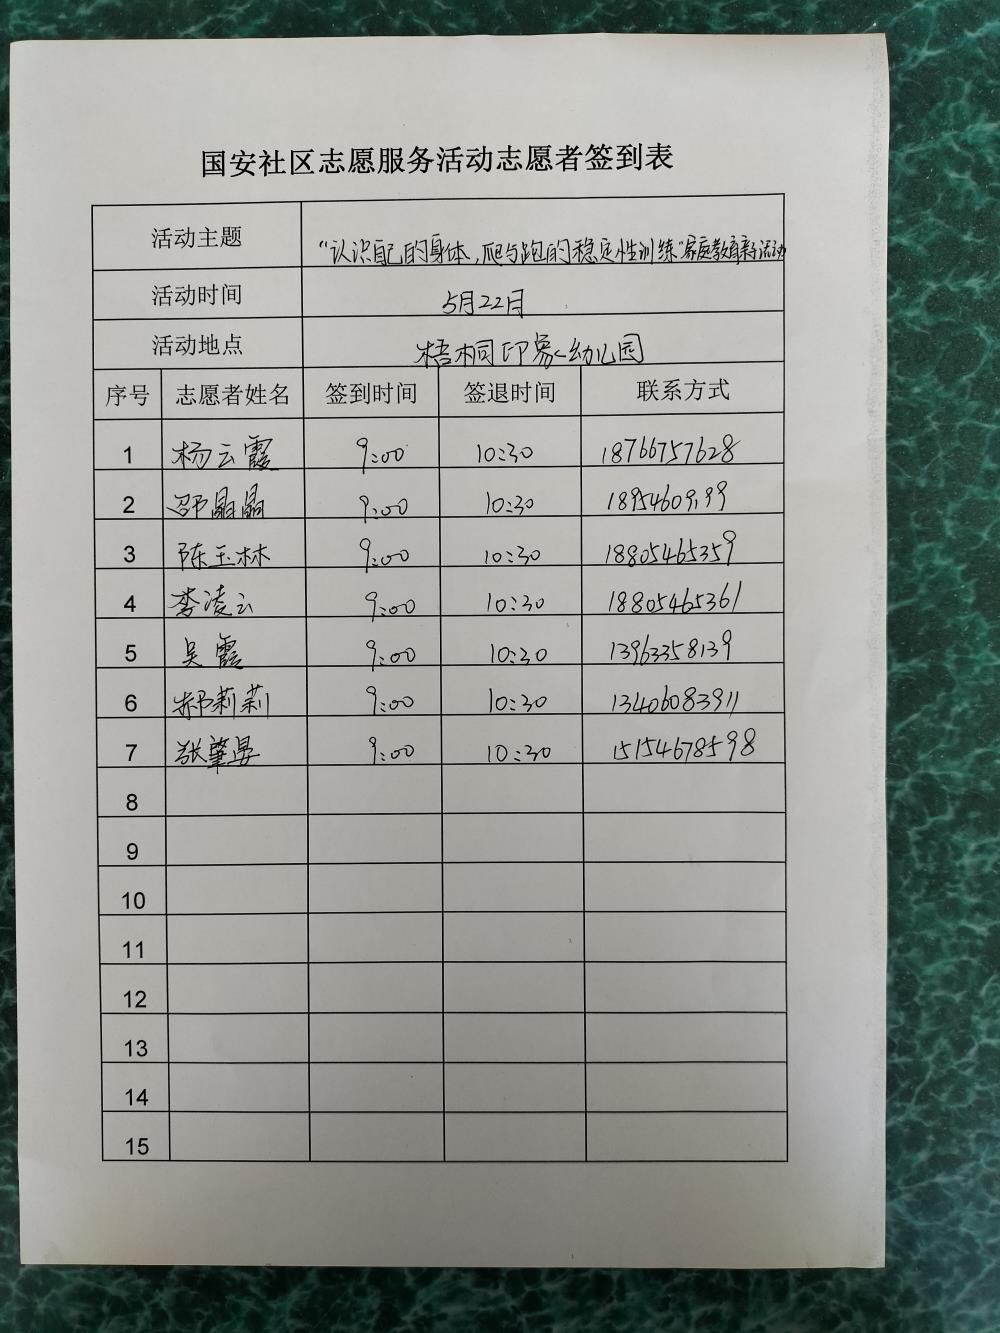 国安社区志愿服务活动志愿者签到表
活动主题 “认识自己的身体,爬与跑的稳定性训练”家庭教育亲子活动
活动时间 5月22日
活动地点 梧桐印象幼儿园
序号 志愿者姓名 签到时间 签退时间 联系方式
1 杨云霞 9:00 10:30 18766757628
2 邵晶晶 9:00 10:30
3 陈玉林 9:00 10:30 18805465359
4 李凌云 9:00 10:30 18805465361
5 吴霞 9:00 10:30 13963358139
6 郝莉莉 9:00 10:30 13406083911
7 张肇晏 9:00 10:30 15154678598
8
9
10
11
12
13
14
15